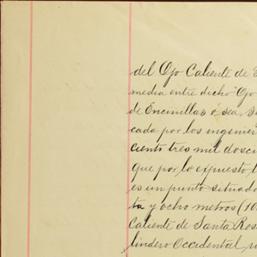 del Ojo Caliente de
media entre dicho Ojo
de Encinillas ó sea,
cada por los ingenie
ciento tres mil dosci
que por lo expuesto,
es un punto situado
ta y ocho metros (10
Caliente de Santa Ros
lindero Occidental,